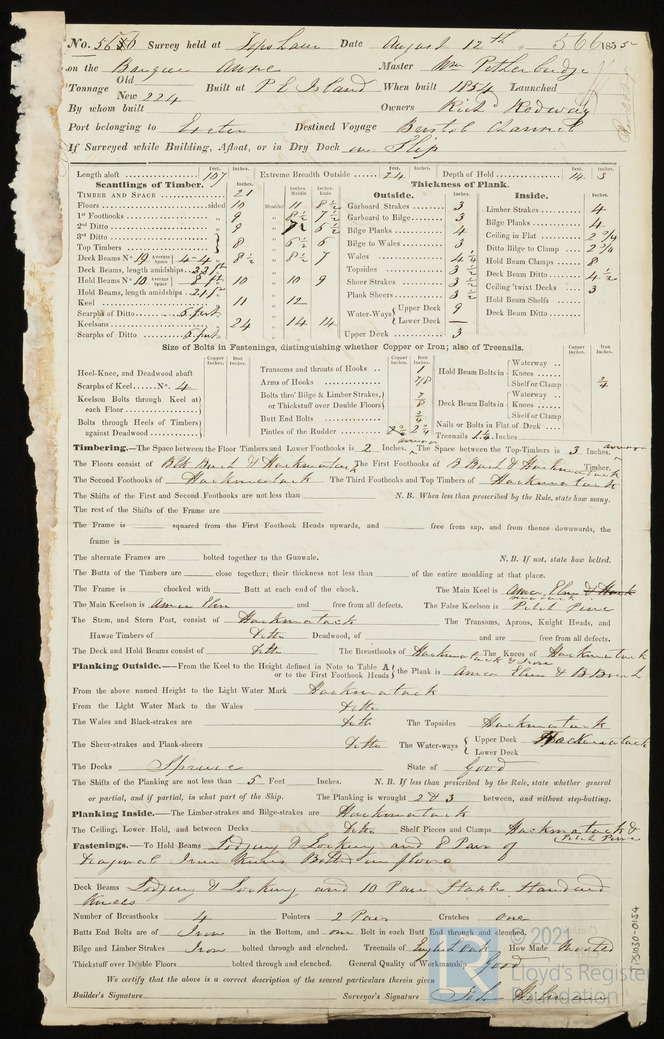 No. 5656 Survey held at Topsham Date August 12th 566 1855
on the Barque Anne Master Wm
Tonnage Old
New 224 Built at P E Island When built 1854 Launched
By whom built Owners Richd Redway
Port belonging to Exeter Destined Voyage Bristol Channel
If Surveyed while Building, Afloat, or in Dry Dock on Slip
Feet. Inches. Feet. Inches. Feet. Inches.
Length aloft 107 Extreme Breadth Outside 24 Depth of Hold 14 3
Scantlings of Timber. Thickness of Plank.
Timber and Space 21 Outside. Inside.
Floors sided 10 Moulded 11 8 1/2 Garboard Strakes 3 Limber Strakes 4
1st Foothooks 9 8 1/2 7 1/2 Garboard to Bilge 3 Bilge Planks 4
2nd Ditto 9 Bilge Planks 4 Ceiling in Flat 2 3/4
3rd Ditto Bilge to Wales 3 Ditto Bilge to Clamp 2 3/4
Top Timbers 8 Wales 4 1/2 Hold Beam Clamps 8
Deck Beams No 19 Average Space 4-4 8 1/2 8 1/2 7 Topsides 3 1/2 Deck Beam Ditto 4 1/2
Deck Beams, length amidships Sheer Strakes 3 1/2 Ceiling 'twixt Decks 3
Hold Beams No 10 Average Space 10 10 9 Plank Sheers 3 1/2 Hold Beam Shelfs
Hold Beams, length amidships Water-Ways Upper Deck 9 Deck Beam Ditto
Keel 11 12 Lower Deck —
Scarphs of Ditto 5 feet Upper Deck 3
Keelsons 24 14 14
Scarphs of Ditto 5 feet
Size of Bolts in Fastenings, distinguishing whether Copper or Iron; also of Treenails.
Copper Inches. Iron Inches. Copper or Inches. Iron Inches. Copper Inches. Iron Inches.
Heel-Knee, and Deadwood abaft Transoms and throats of Hooks 1 Hold Beam Bolts in Waterway
Scarphs of Keel No. 4 Arms of Hooks 7/8 Knees
Keelson Bolts through Keel at each Floor Bolts thro' Bilge & Limber Strakes, or Thickstuff over Double Floors 7/8 Shelf or Clamp 3/4
Bolts through Heels of Timbers against Deadwood Butt End Bolts 3/4 Deck Beam Bolts in Waterway
Pintles of the Rudder 2 3/4 Knees
Shelf or Clamp
Nails or Bolts in Flat of Deck
Treenails 1 1/4 Inches.
Timbering.—The Space between the Floor Timbers and Lower Foothooks is 2 Inches. The Space between the Top-Timbers is 3 Inches.
The Floors consist of Blk Birch & Hackmatack The First Foothooks of B Birch & Hackmatack Timber.
The Second Foothooks of Hackmatack The Third Foothooks and Top Timbers of Hackmatack
The Shifts of the First and Second Foothooks are not less than N. B. When less than prescribed by the Rule, state how many.
The rest of the Shifts of the Frame are
The Frame is squared from the First Foothook Heads upwards, and free from sap, and from thence downwards, the
frame is
The alternate Frames are bolted together to the Gunwale. N. B. If not, state how bolted.
The Butts of the Timbers are close together; their thickness not less than of the entire moulding at that place.
The Frame is chocked with Butt at each end of the chock. The Main Keel is Amer Elm & Hackmatack
The Main Keelson is Amer Elm and free from all defects. The False Keelson is Pitch Pine
The Stem, and Stern Post, consist of Hackmatack The Transoms, Aprons, Knight Heads, and
Hawse Timbers of Ditto Deadwood, of and are free from all defects.
The Deck and Hold Beams consist of Ditto The Breasthooks of Hackmatack & Iron The Knees of Hackmatack
Planking Outside.—From the Keel to the Height defined in Note to Table A, or to the First Foothook Heads the Plank is Amer Elm & B Birch
From the above named Height to the Light Water Mark Hackmatack
From the Light Water Mark to the Wales Ditto
The Wales and Black-strakes are Ditto The Topsides Hackmatack
The Sheer-strakes and Plank-sheers Ditto The Water-ways Upper Deck Hackmatack
Lower Deck
The Decks Spruce State of Good
The Shifts of the Planking are not less than 5 Feet Inches. N. B. If less than prescribed by the Rule, state whether general
or partial, and if partial, in what part of the Ship. The Planking is wrought 2 & 3 between, and without step-butting.
Planking Inside.—The Limber-strakes and Bilge-strakes are Hackmatack
The Ceiling, Lower Hold, and between Decks Ditto Shelf Pieces and Clamps Hackmatack & Pitch Pine
Fastenings.—To Hold Beams Lodging & Looking and 8 Pair of
Diagonal Iron Knees Bolted in floors
Deck Beams Lodging & Looking and 10 Pair Staple Standard
Knees
Number of Breasthooks 4 Pointers 2 Pair Crutches one
Butts End Bolts are of Iron in the Bottom, and one Bolt in each Butt End through and clenched.
Bilge and Limber Strakes Iron bolted through and clenched. Treenails of English Oak How Made Mooted
Thickstuff over Double Floors bolted through and clenched. General Quality of Workmanship Good
We certify that the above is a correct description of the several particulars therein given
Builder's Signature Surveyor's Signature
© 2021
Lloyd's Register
Foundation